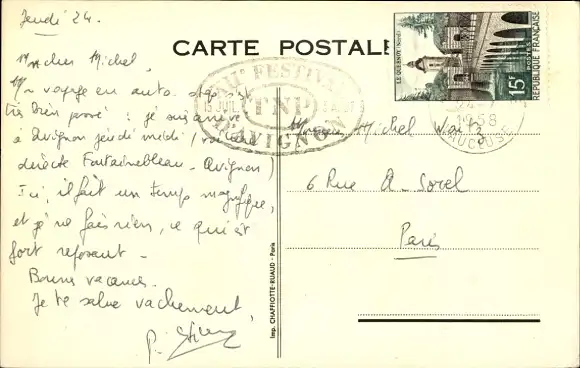 Jeudi 24.
CARTE POSTALE
Mon cher Michel,
Mon voyage en auto-stop s'est
très bien passé : je suis arrivé
à Avignon jeudi midi (voiture
directe Fontainebleau - Avignon)
Ici, il fait un temps magnifique,
et je ne fais rien, ce qui est
fort reposant -
Bonnes vacances.
Je te salue vachement,
FESTIVAL
15 JUIL
TNP
D'AVIGNON
LE QUESNOY (Nord)
15F
POSTES
REPUBLIQUE FRANÇAISE
1958
VAUCLUSE
Michel
6 Rue A- Sorel
Paris
Imp. CHAFFIOTTE-RUAUD - Paris